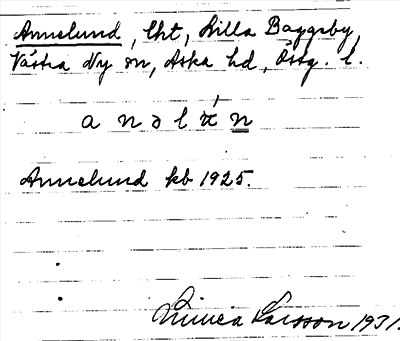 Annelund, lht, Lilla Baggeby,
Västra Ny sn, Aska hd, Östg. l.
a n ə l ń̲
Annelund kb 1925.
Linnea Larsson 1931.